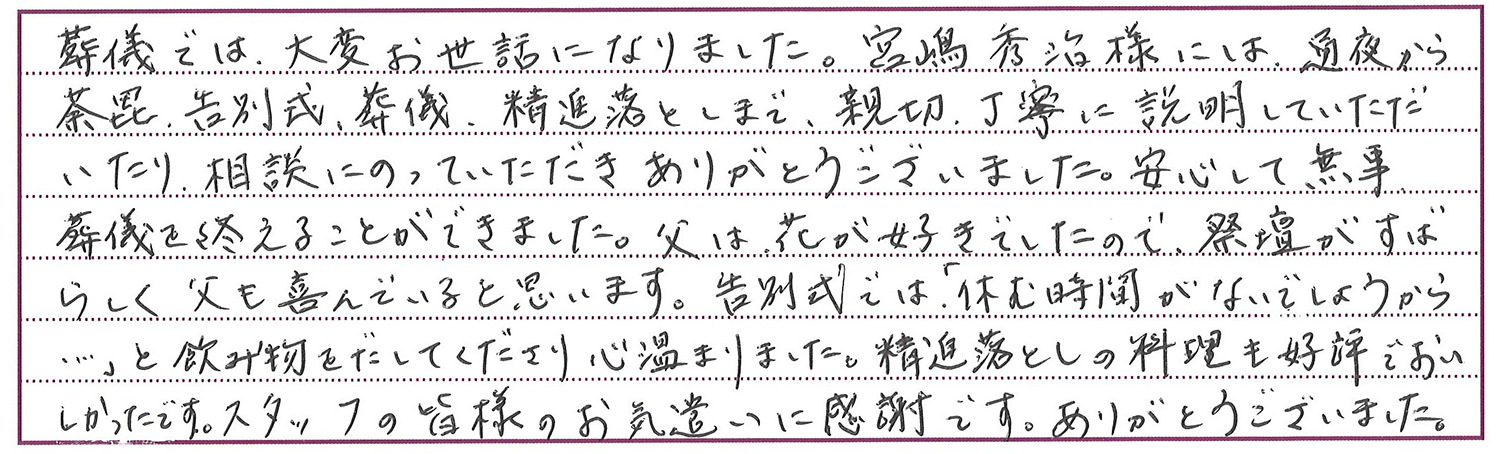 葬儀では、大変お世話になりました。宮嶋秀治様には、通夜から
荼毘、告別式、葬儀、精進落としまで、親切、丁寧に説明していただ
いたり、相談にのっていただきありがとうございました。安心して無事
葬儀を終えることができました。父は、花が好きでしたので、祭壇がすば
らしく父も喜んでいると思います。告別式では、「休む時間がないでしょうから
…」と飲み物をだしてくださり心温まりました。精進落としの料理も好評でおい
しかったです。スタッフの皆様のお気遣いに感謝です。ありがとうございました。